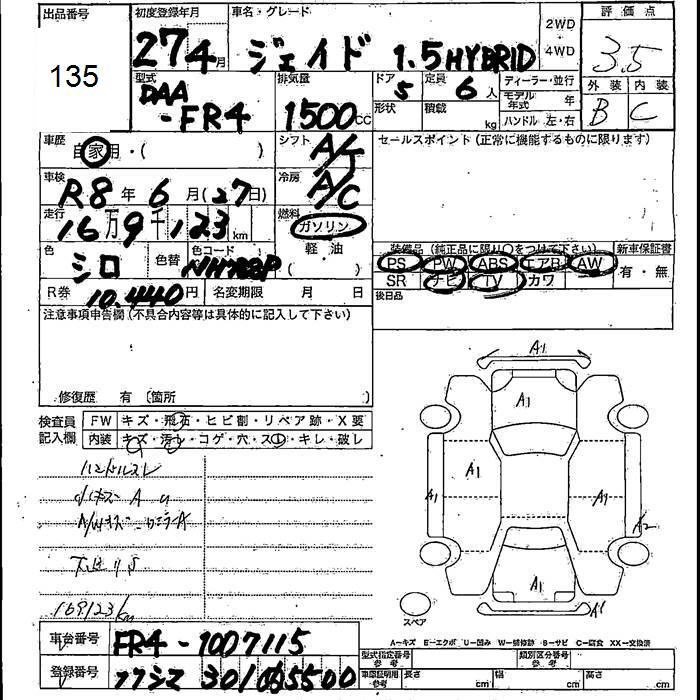 出品番号 初度登録年月 車名・グレード 2WD 評価点
135 27 4月 ジェイド 1.5 HYBRID ・ 3.5
4WD
型式 排気量 ドア 定員 ディーラー・並行 外装 内装
DAA 1500cc 5 6人 モデル年式 年 B C
-FR4 形状 積載 kg ハンドル 左・右
車歴 自家用・( ) シフト A/T セールスポイント (正常に機能するものに限ります)
車検 R8年6月(27日) 冷房 A/C
走行 16万9千123km 燃料 ガソリン
装備品 (純正品に限り○をつけて下さい) 新車保証書
色 シロ 色替 色コード NH788P 軽・油 ( )
PS PW ABS エアB AW 有・無
SR ナビ TV カワ
R券 10.440円 名変期限 月 日 後日品
注意事項申告欄(不具合内容等は具体的に記入して下さい)
修復歴 有 〔箇所
検査員 FW キズ・飛石・ヒビ割・リペア跡・X要
記入欄 内装 キズ・汚レ・コゲ・穴・スレ・キレ・破レ
ハンドルスレ
小キズ A U
下廻りS
169123km
A1
A1
A1
A1
A1
A2
A1
A1
A1
スペア
A-キズ E-エクボ U-凹み W-補修跡 S-サビ C-腐食 XX-交換済
車台番号 FR4-1007115
型式指定番号 参考 類別区分番号 参考
登録番号 301 5500
車庫証明用 参考 長さ cm 幅 cm 高さ cm